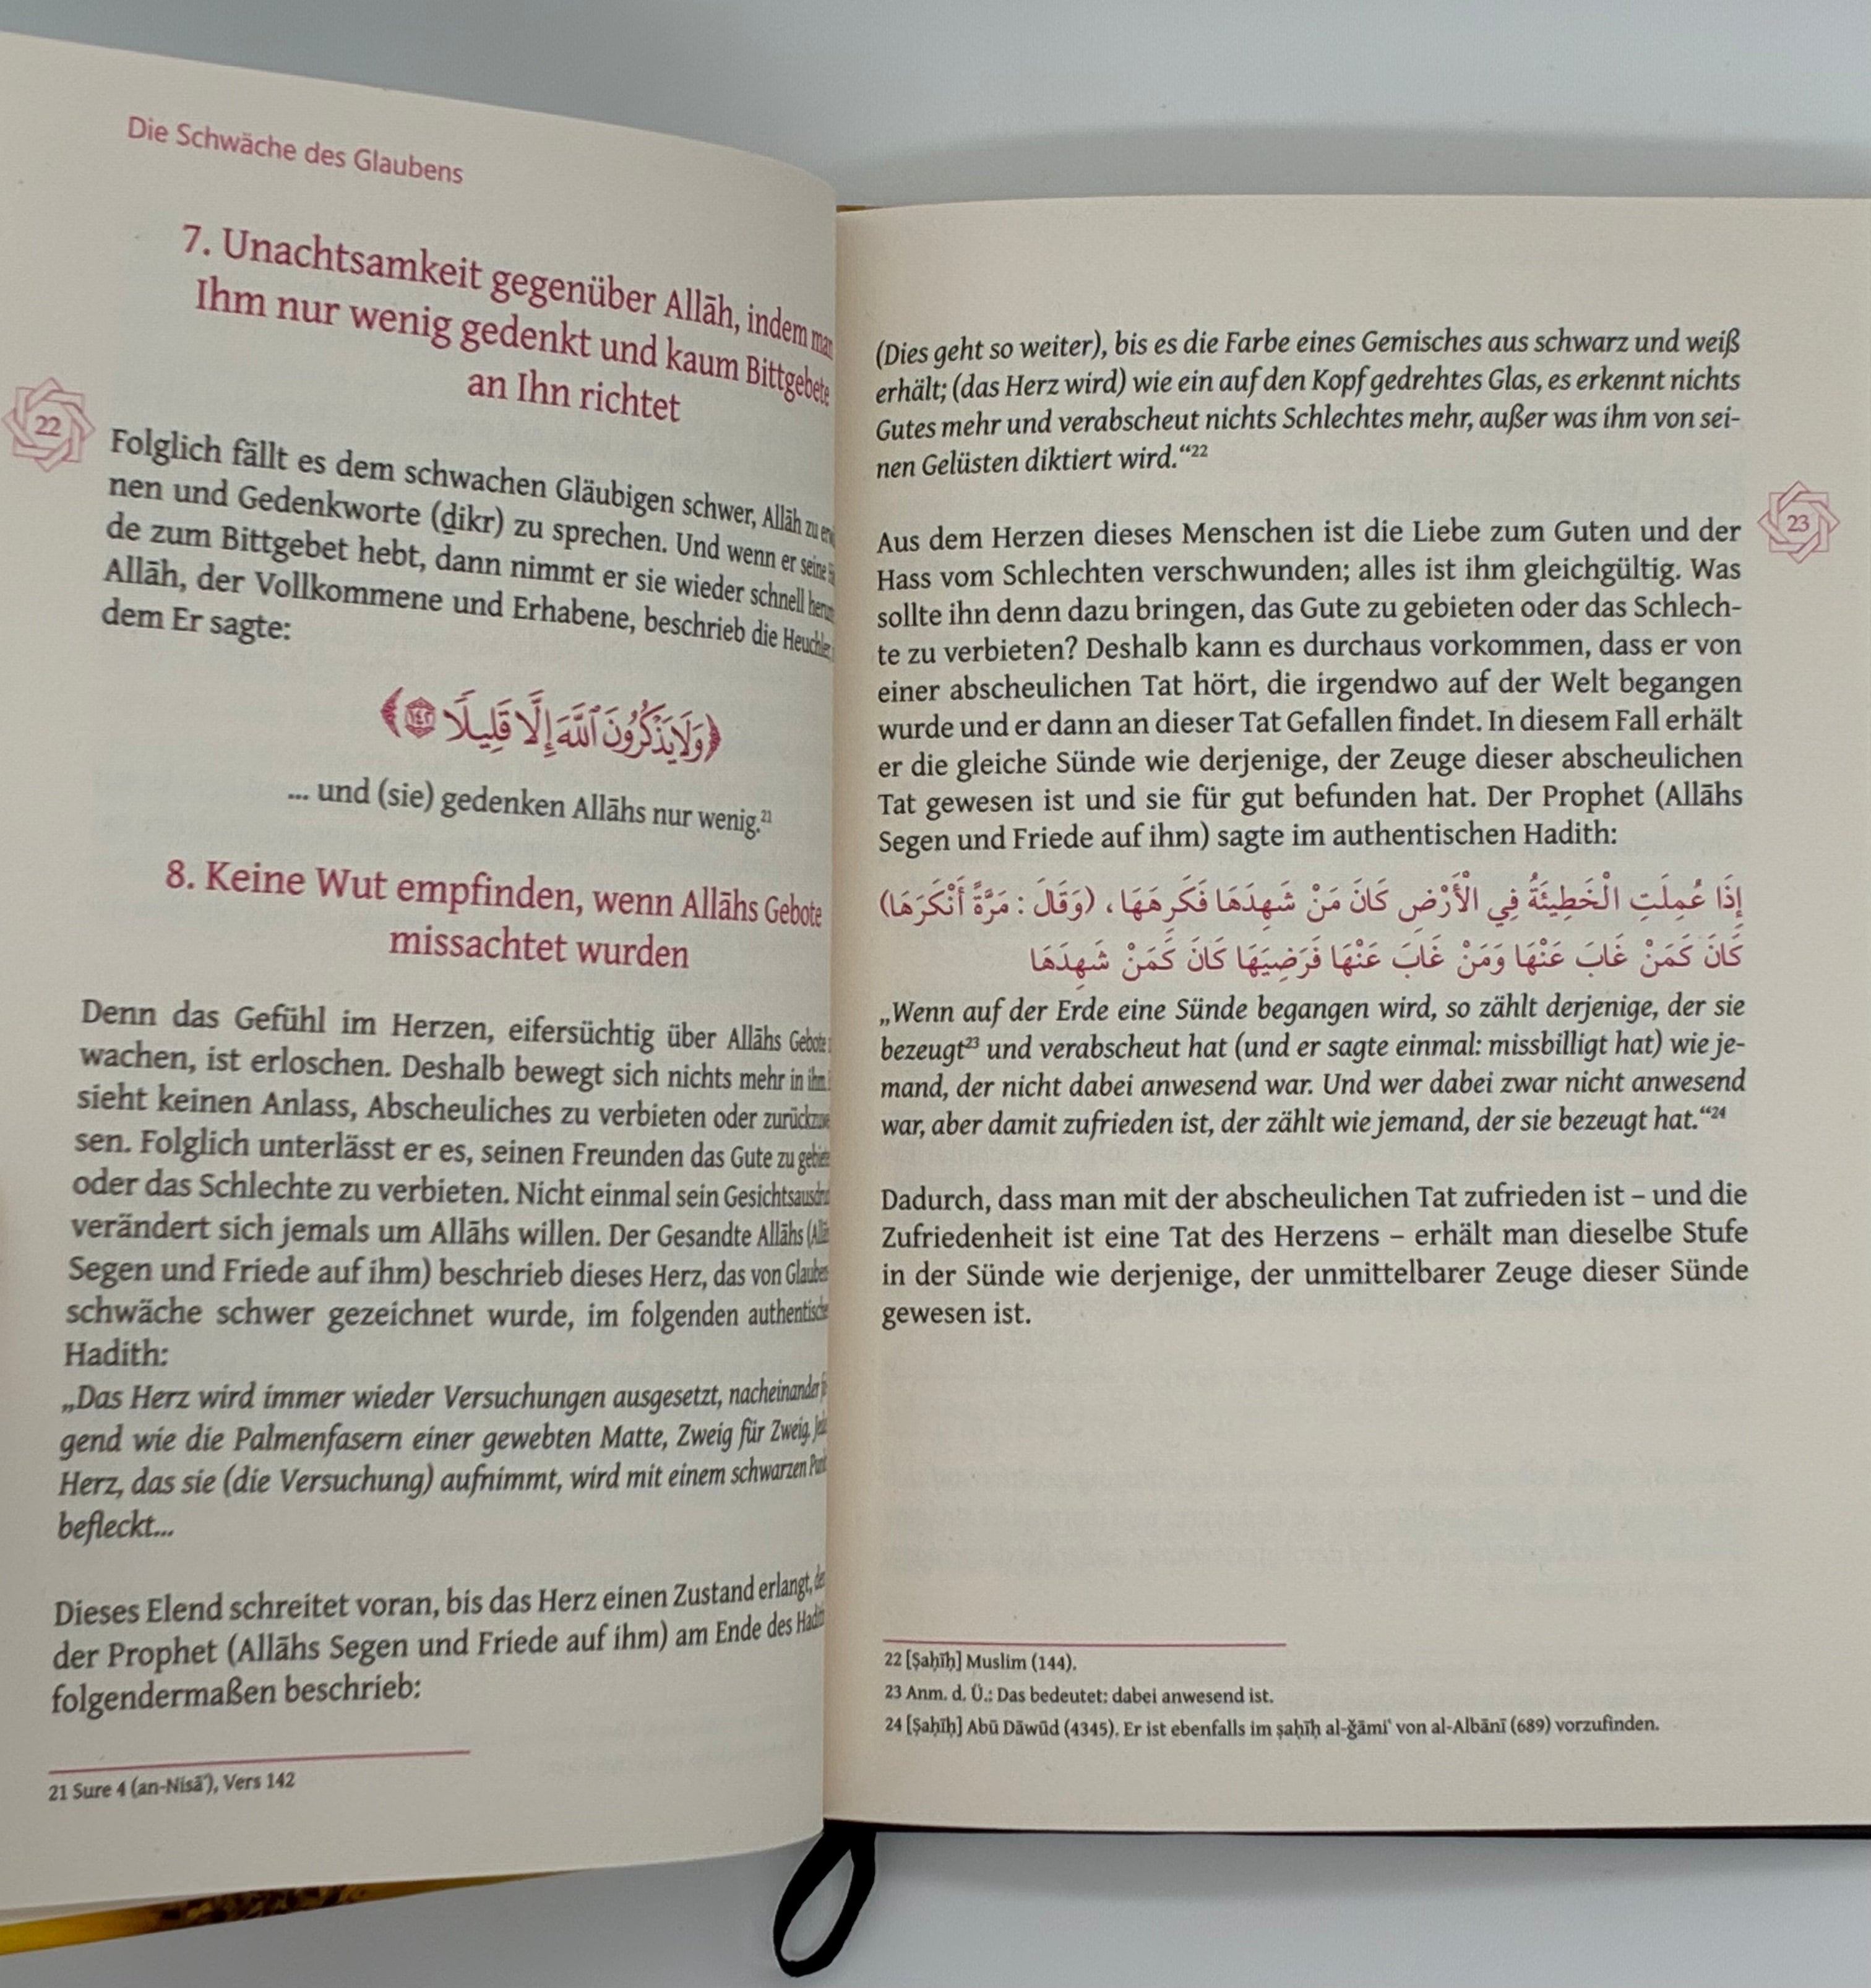 Die Schwäche des Glaubens
7. Unachtsamkeit gegenüber Allāh, indem man
Ihm nur wenig gedenkt und kaum Bittgebete
an Ihn richtet
22
Folglich fällt es dem schwachen Gläubigen schwer, Allāh zu
nen und Gedenkworte (ḏikr) zu sprechen. Und wenn er seine
de zum Bittgebet hebt, dann nimmt er sie wieder schnell
Allāh, der Vollkommene und Erhabene, beschrieb die Heuchler,
dem Er sagte:
﴿وَلَا يَذْكُرُونَ ٱللَّهَ إِلَّا قَلِيلًا ١٤٢﴾
... und (sie) gedenken Allāhs nur wenig.21
8. Keine Wut empfinden, wenn Allāhs Gebote
missachtet wurden
Denn das Gefühl im Herzen, eifersüchtig über Allāhs Gebote
wachen, ist erloschen. Deshalb bewegt sich nichts mehr in
sieht keinen Anlass, Abscheuliches zu verbieten oder
sen. Folglich unterlässt er es, seinen Freunden das Gute zu
oder das Schlechte zu verbieten. Nicht einmal sein
verändert sich jemals um Allāhs willen. Der Gesandte Allāhs
Segen und Friede auf ihm) beschrieb dieses Herz, das von
schwäche schwer gezeichnet wurde, im folgenden
Hadith:
„Das Herz wird immer wieder Versuchungen ausgesetzt, nacheinander
gend wie die Palmenfasern einer gewebten Matte, Zweig für Zweig.
Herz, das sie (die Versuchung) aufnimmt, wird mit einem schwarzen
befleckt...
Dieses Elend schreitet voran, bis das Herz einen Zustand erlangt,
der Prophet (Allāhs Segen und Friede auf ihm) am Ende des
folgendermaßen beschrieb:
21 Sure 4 (an-Nisāʾ), Vers 142
(Dies geht so weiter), bis es die Farbe eines Gemisches aus schwarz und weiß
erhält; (das Herz wird) wie ein auf den Kopf gedrehtes Glas, es erkennt nichts
Gutes mehr und verabscheut nichts Schlechtes mehr, außer was ihm von sei-
nen Gelüsten diktiert wird.“22
23
Aus dem Herzen dieses Menschen ist die Liebe zum Guten und der
Hass vom Schlechten verschwunden; alles ist ihm gleichgültig. Was
sollte ihn denn dazu bringen, das Gute zu gebieten oder das Schlech-
te zu verbieten? Deshalb kann es durchaus vorkommen, dass er von
einer abscheulichen Tat hört, die irgendwo auf der Welt begangen
wurde und er dann an dieser Tat Gefallen findet. In diesem Fall erhält
er die gleiche Sünde wie derjenige, der Zeuge dieser abscheulichen
Tat gewesen ist und sie für gut befunden hat. Der Prophet (Allāhs
Segen und Friede auf ihm) sagte im authentischen Hadith:
إِذَا عُمِلَتِ الْخَطِيئَةُ فِي الْأَرْضِ كَانَ مَنْ شَهِدَهَا فَكَرِهَهَا، (وَقَالَ : مَرَّةً أَنْكَرَهَا)
كَانَ كَمَنْ غَابَ عَنْهَا وَمَنْ غَابَ عَنْهَا فَرَضِيَهَا كَانَ كَمَنْ شَهِدَهَا
„Wenn auf der Erde eine Sünde begangen wird, so zählt derjenige, der sie
bezeugt23 und verabscheut hat (und er sagte einmal: missbilligt hat) wie je-
mand, der nicht dabei anwesend war. Und wer dabei zwar nicht anwesend
war, aber damit zufrieden ist, der zählt wie jemand, der sie bezeugt hat.“24
Dadurch, dass man mit der abscheulichen Tat zufrieden ist – und die
Zufriedenheit ist eine Tat des Herzens – erhält man dieselbe Stufe
in der Sünde wie derjenige, der unmittelbarer Zeuge dieser Sünde
gewesen ist.
22 [Ṣaḥīḥ] Muslim (144).
23 Anm. d. Ü.: Das bedeutet: dabei anwesend ist.
24 [Ṣaḥīḥ] Abū Dāwūd (4345). Er ist ebenfalls im ṣaḥīḥ al-ǧāmiʿ von al-Albānī (689) vorzufinden.